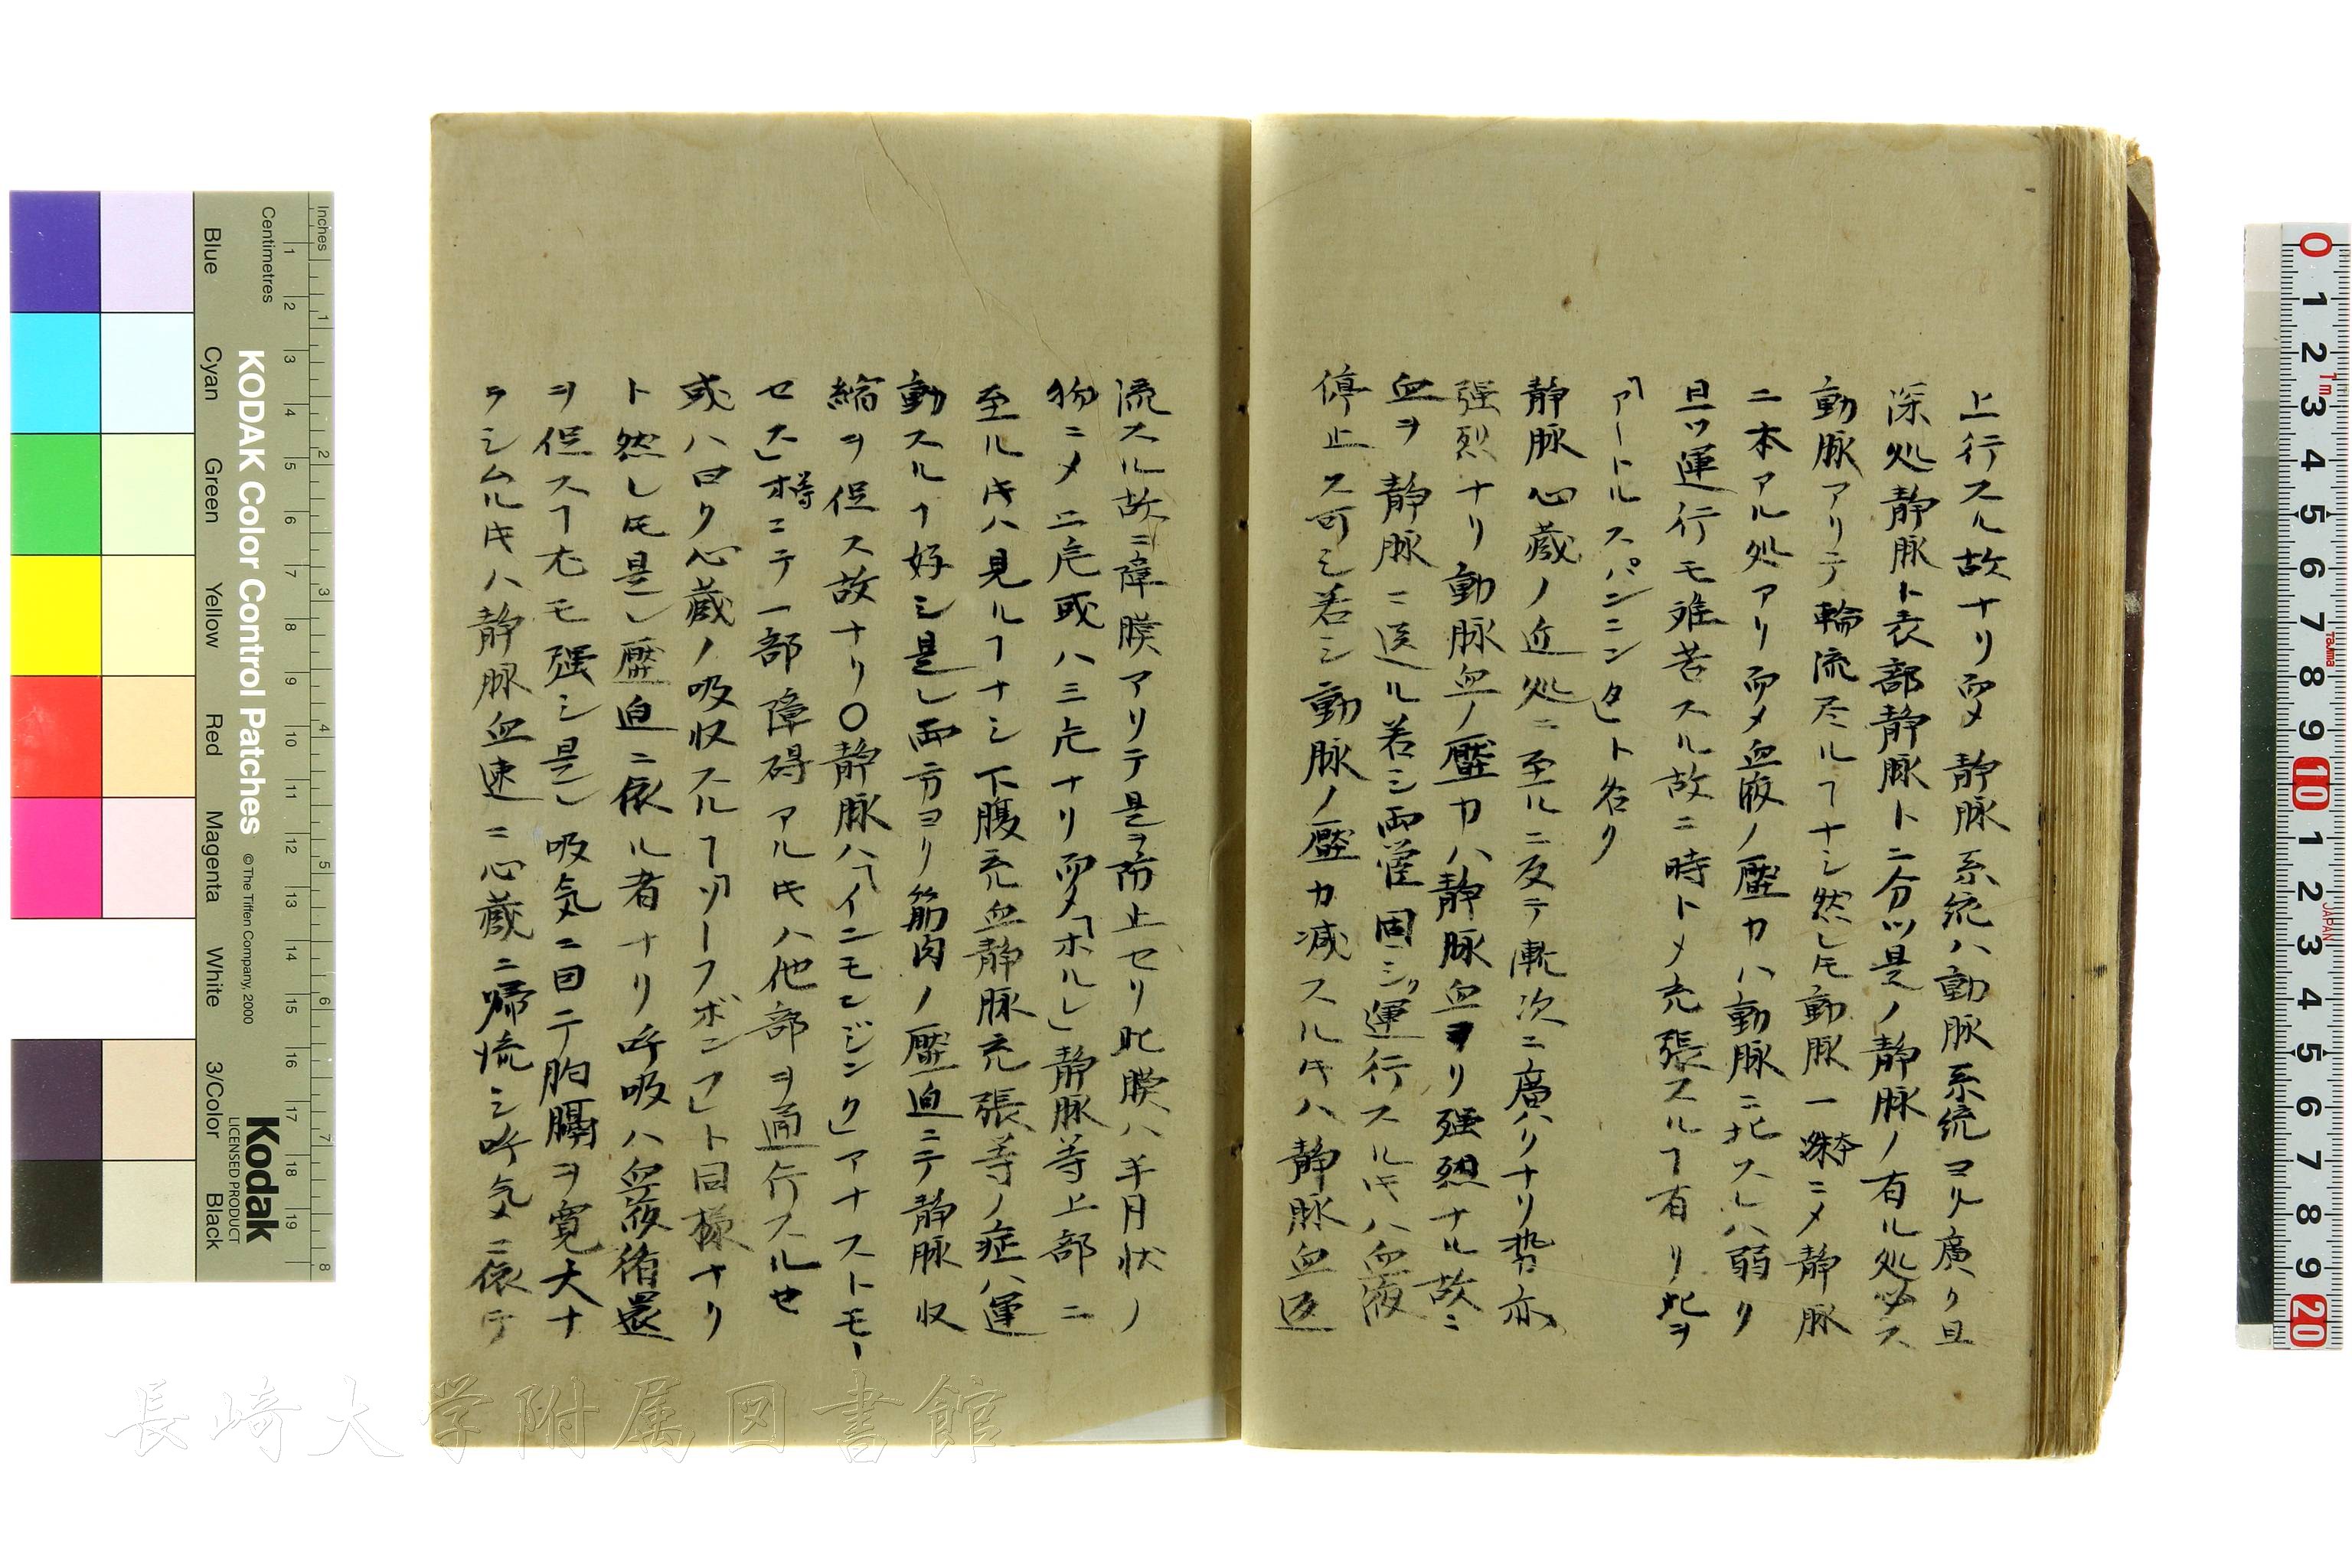 上行スル故ナリ而メ静脈系統ハ動脈系統ヨリ廣ク且
深処静脈ト表部静脈ト二分ツ是ノ静脈ノ有ル処必ス
動脈アリテ輪流尽ルヿナシ然レ𪜈動脈一條ニメ静脈
二本アル処アリ而メ血液ノ壓力ハ動脈ニ比スレハ弱ク
且ツ運行モ難苦スル故ニ時トメ充張スルヿ有リ此ヲ
「アートルスパンニンタ」ト名ク
静脈心蔵ノ近処ニ至ルニ及テ漸次ニ廣ハリナリ勢亦
强烈ナリ動脈血ノ壓力ハ静脈血ヨリ强烈ナル故ニ
血ヲ静脈ニ送ル若シ両管固シク運行スル𪜈ハ血液
停止ス可シ若シ動脈ノ壓力减スル𪜈ハ静脈血返
流スル故ニ障膜アリテ是ヲ防止セリ此膜ハ半月状ノ
物ニメ二片或ハ三片ナリ而メ「ホルレ」静脈等上部ニ
至ル𪜈ハ見ルヿナシ下腹充血静脈充張等ノ症ハ運
動スルヿ好シ是レ両方ヨリ筋肉ノ壓迫ニテ静脈収
縮ヲ促ス故ナリ〇静脈ハ「インモンジンク」アナストモー
セス」樽ニテ一部障碍アル𪜈ハ他部ヲ通行スルセ
或ハ曰ク心蔵ノ吸収スルヿ「ソーフポンプ」ト同様ナリ
ト然レ𪜈是レ壓迫ニ依ル者ナリ呼吸ハ血液循還
ヲ促スヿ尤モ强シ是レ吸気ニ因テ胸膈ヲ寛大ナ
ラシムル𪜈ハ静脈血速ニ心蔵ニ帰流シ呼気ニ依テ
Blue
Cyan
Green
Yellow
Red
Magenta
White
3/Color
Black
KODAK Color Control Patches
© The Tiffen Company, 2000
Kodak
LICENSED PRODUCT
Centimetres
Inches
1 2 3 4 5 6 7 8 9 10 11 12 13 14 15 16 17 18 19
1 2 3 4 5 6 7 8
0 1 2 3 4 5 6 7 8 9 10 1 2 3 4 5 6 7 8 9 20
Tajima
JAPAN
長崎大学附属図書館